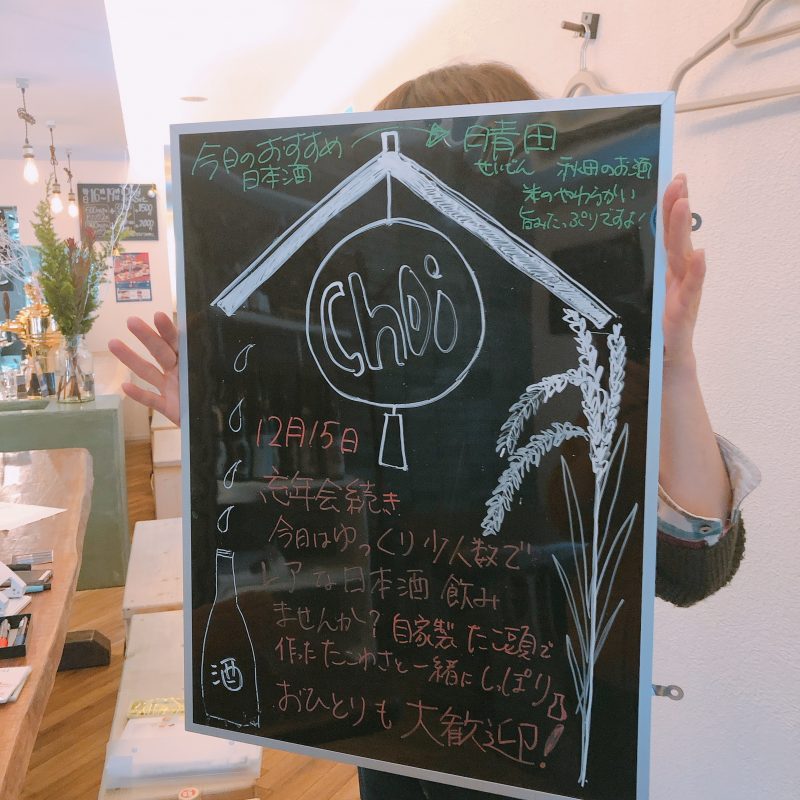 今日のおすすめ
日本酒
晴田
せいでん
秋田のお酒
米のやわらかい
旨みたっぷりですよ!
choi
12月15日
忘年会続き
今日はゆっくり少人数で
レアな日本酒飲み
ませんか?自家製たこ頭で
作ったたこわさと一緒にしっぽり
おひとりも大歓迎!
酒